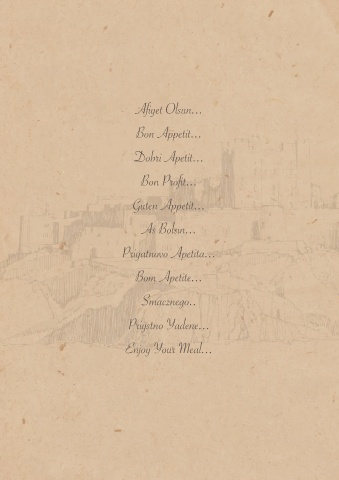 Afiyet Olsun...
Bon Appetit...
Dobri Apetit...
Bon Profit...
Guten Appetit...
As Bolsın...
Prigatnovo Apetita...
Bom Apetite...
Smacznego..
Priystno Yadene...
Enjoy Your Meal...